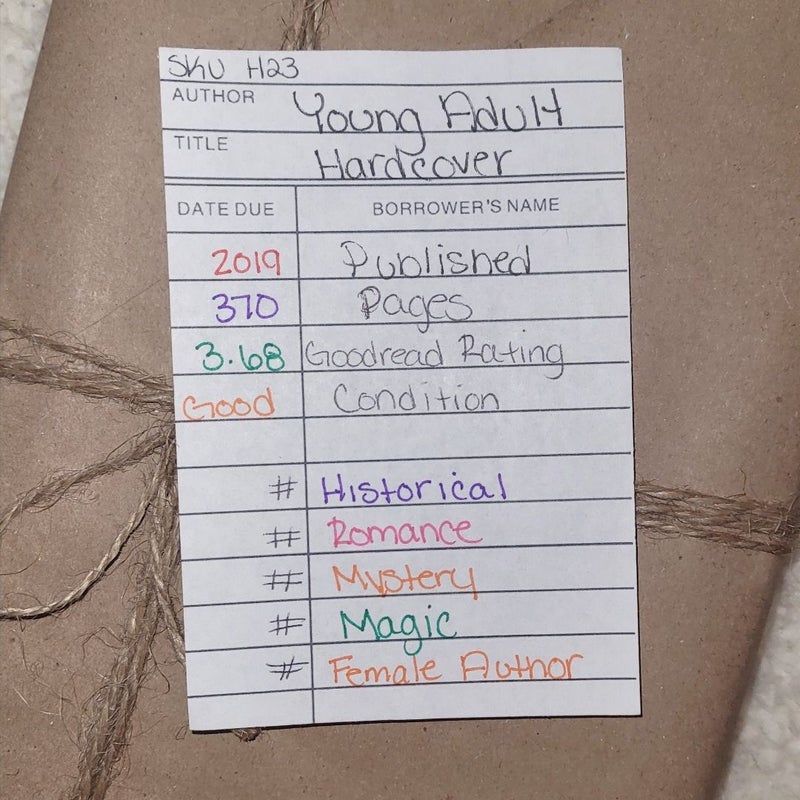 SKU H23
AUTHOR Young Adult
TITLE Hardcover
DATE DUE BORROWER'S NAME
2019 Published
370 Pages
3.68 Goodread Rating
Good Condition
# Historical
# Romance
# Mystery
# Magic
# Female Author